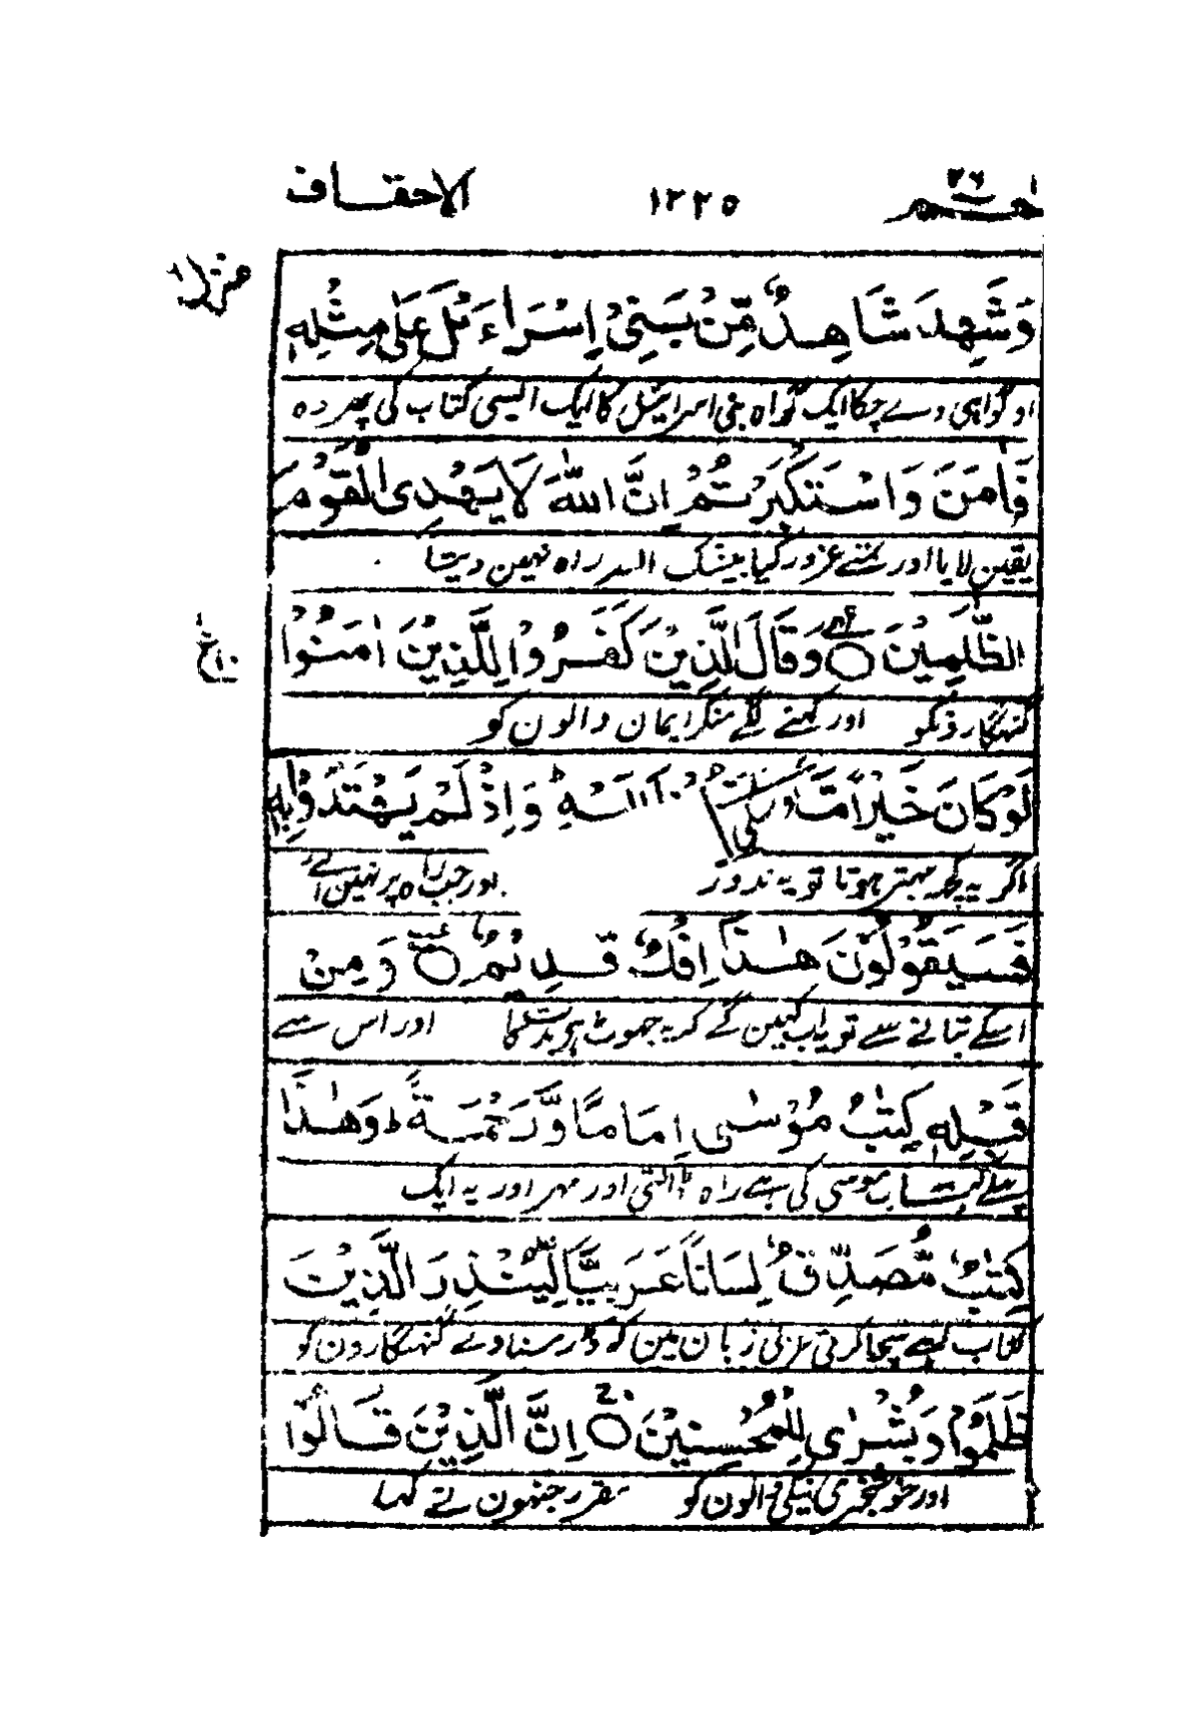 حٰم ٢٦ ١٢٢٥ الاحقاف
منزل ٦
وَشَهِدَ شَاهِدٌ مِّنْ بَنِىْ اِسْرَاءَيْلَ عَلٰى مِثْلِهٖ
اور گواہی دے چکا ایک گواہ بنی اسرائیل کا ایک ایسی کتاب کی پھر وہ
فَاٰمَنَ وَاسْتَكْبَرْتُمْ اِنَّ اللّٰهَ لَا يَهْدِى الْقَوْمَ
یقین لایا اور تمنے غرور کیا بیشک اللہ راہ نہین دیتا
الظّٰلِمِيْنَ ○ وَقَالَ الَّذِيْنَ كَفَرُوْا لِلَّذِيْنَ اٰمَنُوْا
گنہگارونکو اور کہنے لگے منکر ایمان والون کو
لَوْ كَانَ خَيْرًا مَّا اِلَيْهِ وَاِذْ لَمْ يَهْتَدُوْا بِهٖ
اگر یہ کچھ بہتر ہوتا تو یہ ندوڑ اور جب راہ پر نہین آئے
فَسَيَقُوْلُوْنَ هٰذَا اِفْكٌ قَدِيْمٌ ○ وَمِنْ
اسکے بتانے سے تو یاب کہین گے کہ یہ جھوٹ ہے مدت کا اور اس سے
قَبْلِهٖ كِتٰبُ مُوْسٰى اِمَامًا وَّرَحْمَةً ط وَهٰذَا
پہلے کتاب موسی کی ہے راہ ڈالتی اور مہر اور یہ ایک
كِتٰبٌ مُّصَدِّقٌ لِّسَانًا عَرَبِيًّا لِّيُنْذِرَ الَّذِيْنَ
کتاب ہے سچا کرتی عربی زبان مین کہ ڈر سناوے گنہگارون کو
ظَلَمُوْا وَبُشْرٰى لِلْمُحْسِنِيْنَ ○ اِنَّ الَّذِيْنَ قَالُوْا
اور خوشخبری نیکی والون کو مقرر جنہون نے کہا